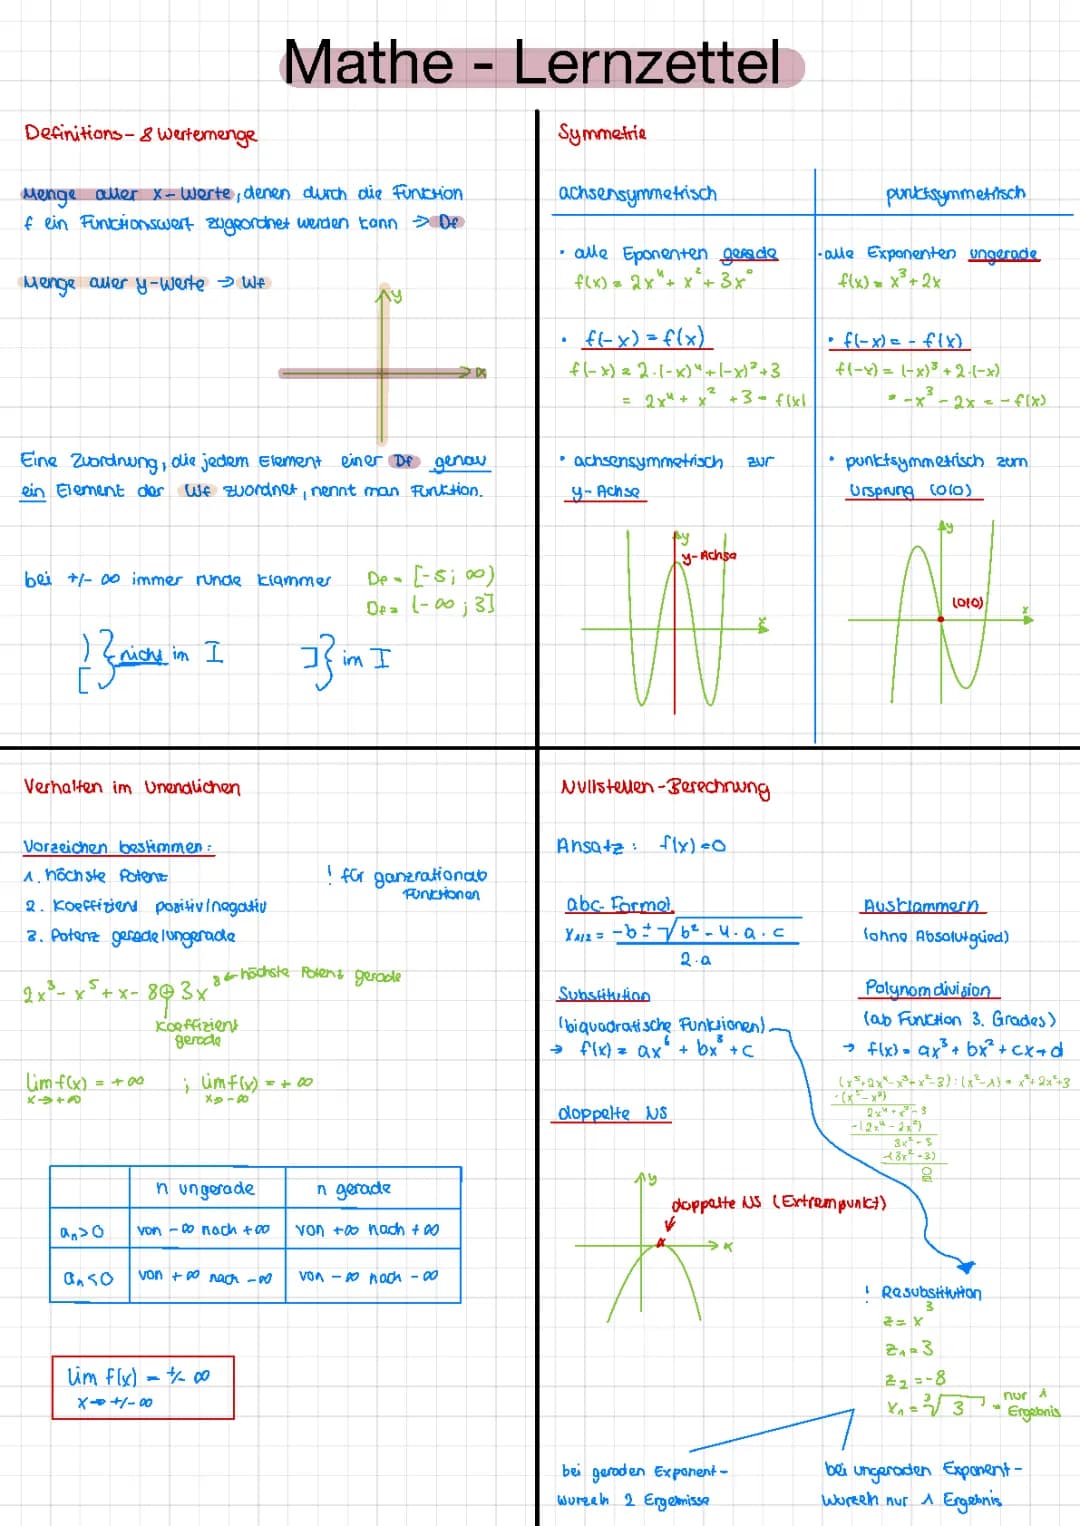 Mathe - Lernzettel
Definitions- & Wertemenge
Menge aller x-Werte, denen durch die Funktion
f ein Funktionswert zugeordnet werden kann => Df
Menge aller y-Werte => Wf
y
x
Eine Zuordnung, die jedem Element einer Df genau
ein Element der Wf zuordnet, nennt man Funktion.
bei +/- ∞ immer runde Klammer Df = [-5; ∞)
Df = (-∞; 3]
) [ } nicht im I ] } im I
Symmetrie
achsensymmetrisch
• alle Eponenten gerade
f(x) = 2x⁴ + x² + 3x⁰
• f(-x) = f(x)
f(-x) = 2·(-x)⁴ + (-x)² + 3
= 2x⁴ + x² + 3 = f(x)
• achsensymmetrisch zur
y-Achse
y
y-Achse
x
punktsymmetrisch
• alle Exponenten ungerade
f(x) = x³ + 2x
• f(-x) = - f(x)
f(-x) = (-x)³ + 2·(-x)
= -x³ - 2x = -f(x)
• punktsymmetrisch zum
Ursprung (0|0)
y
(0|0)
x
Verhalten im Unendlichen
Vorzeichen bestimmen:
1. höchste Potenz
2. Koeffizient positiv/negativ
3. Potenz gerade/ungerade
! für ganzrationale
Funktionen
2x³ - x⁵ + x - 8 + 3x⁸ ← höchste Potenz gerade
Koeffizient
gerade
lim f(x) = +∞ ; lim f(x) = +∞
x→+∞ x→-∞
n ungerade n gerade
aₙ>0 von -∞ nach +∞ von +∞ nach +∞
aₙ<0 von +∞ nach -∞ von -∞ nach -∞
lim f(x) = +/- ∞
x→ +/- ∞
Nullstellen-Berechnung
Ansatz: f(x) = 0
abc-Formel
x₁/₂ = -b ± √b² - 4·a·c
2·a
Substitution
(biquadratische Funktionen)
→ f(x) = ax⁶ + bx³ + c
doppelte NS
y
doppelte NS (Extrempunkt)
x
Ausklammern
(ohne Absolutglied)
Polynomdivision
(ab Funktion 3. Grades)
→ f(x) = ax³ + bx² + cx + d
(x⁵+2x⁴-x³+x²-3):(x²-1) = x³+2x²+3
-(x⁵-x³)
2x⁴+x²-3
-(2x⁴-2x²)
3x²-3
-(3x²-3)
0
! Resubstitution
z = x³
z₁ = 3
z₂ = -8
x₁ = ³√3 = nur 1
Ergebnis
bei geraden Exponent-
wurzeln 2 Ergebnisse
bei ungeraden Exponent-
wurzeln nur 1 Ergebnis